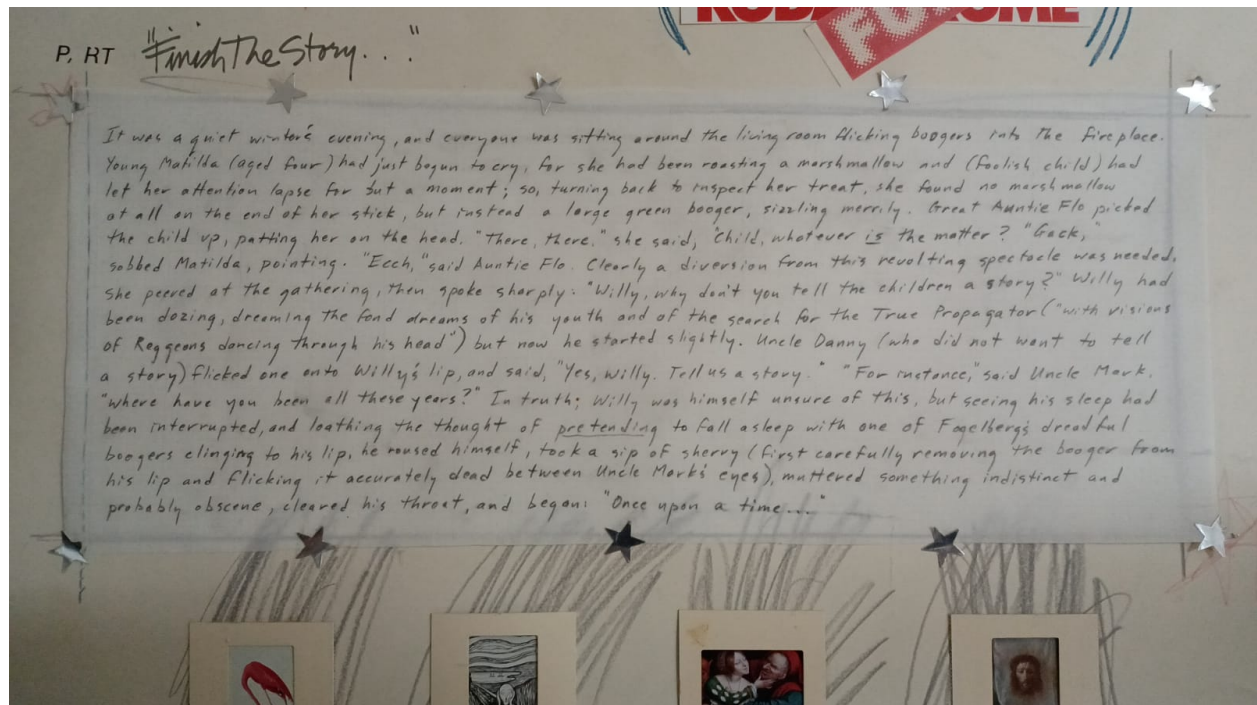 KODA OME
FU
P. RT "Finish The Story. . ."
It was a quiet winter's evening, and everyone was sitting around the living room flicking boogers into the fireplace.
Young Matilda (aged four) had just begun to cry, for she had been roasting a marshmallow and (foolish child) had
let her attention lapse for but a moment; so, turning back to inspect her treat, she found no marshmallow
at all on the end of her stick, but instead a large green booger, sizzling merrily. Great Auntie Flo picked
the child up, patting her on the head. "There, there," she said, "Child, whatever is the matter? "Gack,"
sobbed Matilda, pointing. "Ecch," said Auntie Flo. Clearly a diversion from this revolting spectacle was needed.
She peered at the gathering, then spoke sharply: "Willy, why don't you tell the children a story?" Willy had
been dozing, dreaming the fond dreams of his youth and of the search for the True Propagator ("with visions
of Reggeons dancing through his head") but now he started slightly. Uncle Danny (who did not want to tell
a story) flicked one onto Willy's lip, and said, "Yes, Willy. Tell us a story." "For instance," said Uncle Mark.
"where have you been all these years?" In truth; Willy was himself unsure of this, but seeing his sleep had
been interrupted, and loathing the thought of pretending to fall asleep with one of Fogelberg's dreadful
boogers clinging to his lip, he roused himself, took a sip of sherry (first carefully removing the booger from
his lip and flicking it accurately dead between Uncle Mark's eyes), muttered something indistinct and
probably obscene, cleared his throat, and began: "Once upon a time..."